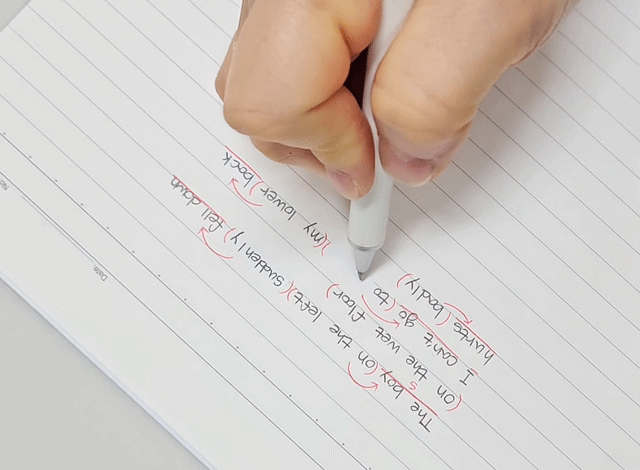 No.
Date
The boy (on the left)(suddenly) fell down
s
(on the wet floor)
I can't go (to )(my lower) back
hurts (badly)